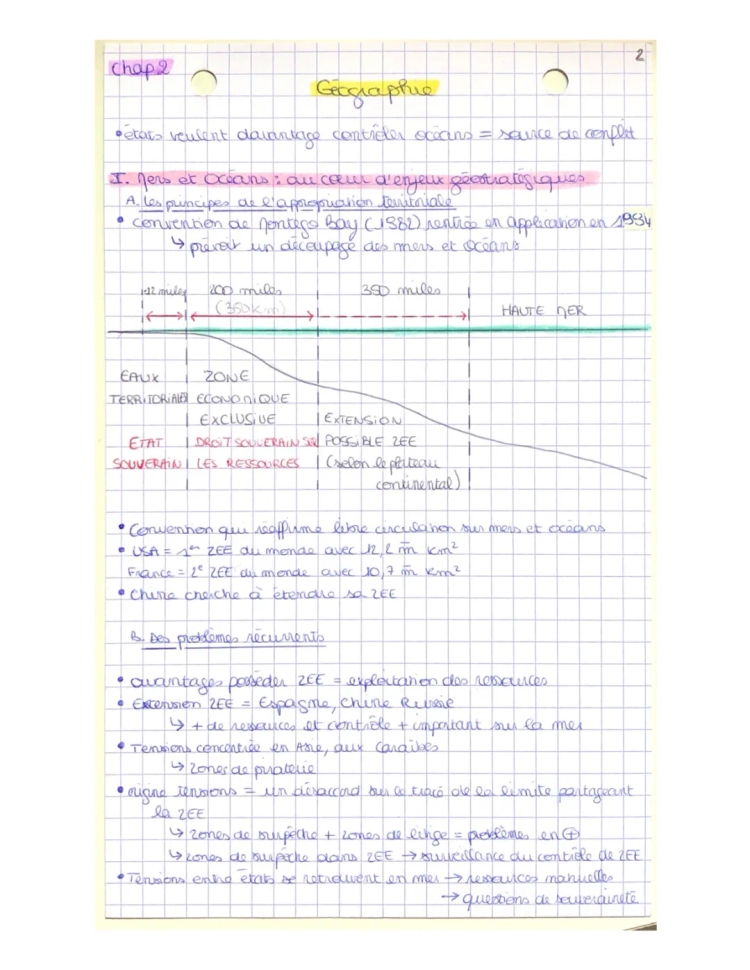 2
Chap 2
Géographie
• états veulent davantage contrôler océans = source de conflit
I. Mers et Océans : au cœur d'enjeux géostratégiques
A. Les principes de l'appropriation territoriale
• Convention de Montego Bay (1982) rentrée en application en 1994
↳ prévoit un découpage des mers et océans
12 miles 200 miles 350 miles
(350km) HAUTE MER
EAUX ZONE
TERRITORIALES ECONOMIQUE
EXCLUSIVE EXTENSION
ETAT DROIT SOUVERAIN SUR POSSIBLE ZEE
SOUVERAIN LES RESSOURCES (selon le plateau
continental)
• Convention qui réaffirme libre circulation sur mers et océans
• USA = 1er ZEE du monde avec 12,2 m km²
France = 2e ZEE du monde avec 10,7 m km²
• Chine cherche à étendre sa ZEE
B. Des problèmes récurrents
• avantages posséder ZEE = exploitation des ressources
• Extension ZEE = Espagne, Chine Russie
↳ + de ressources et contrôle + important sur la mer
• Tensions concentrée en Asie, aux Caraïbes
↳ zones de piraterie
• origine tensions = un désaccord sur le tracé de la limite partageant
la ZEE
↳ zones de surpêche + zones de litige = problèmes en ⊕
↳ zones de surpêche dans ZEE → surveillance du contrôle de ZEE
• Tensions entre états se retrouvent en mer → ressources manuelles
→ questions de souveraineté